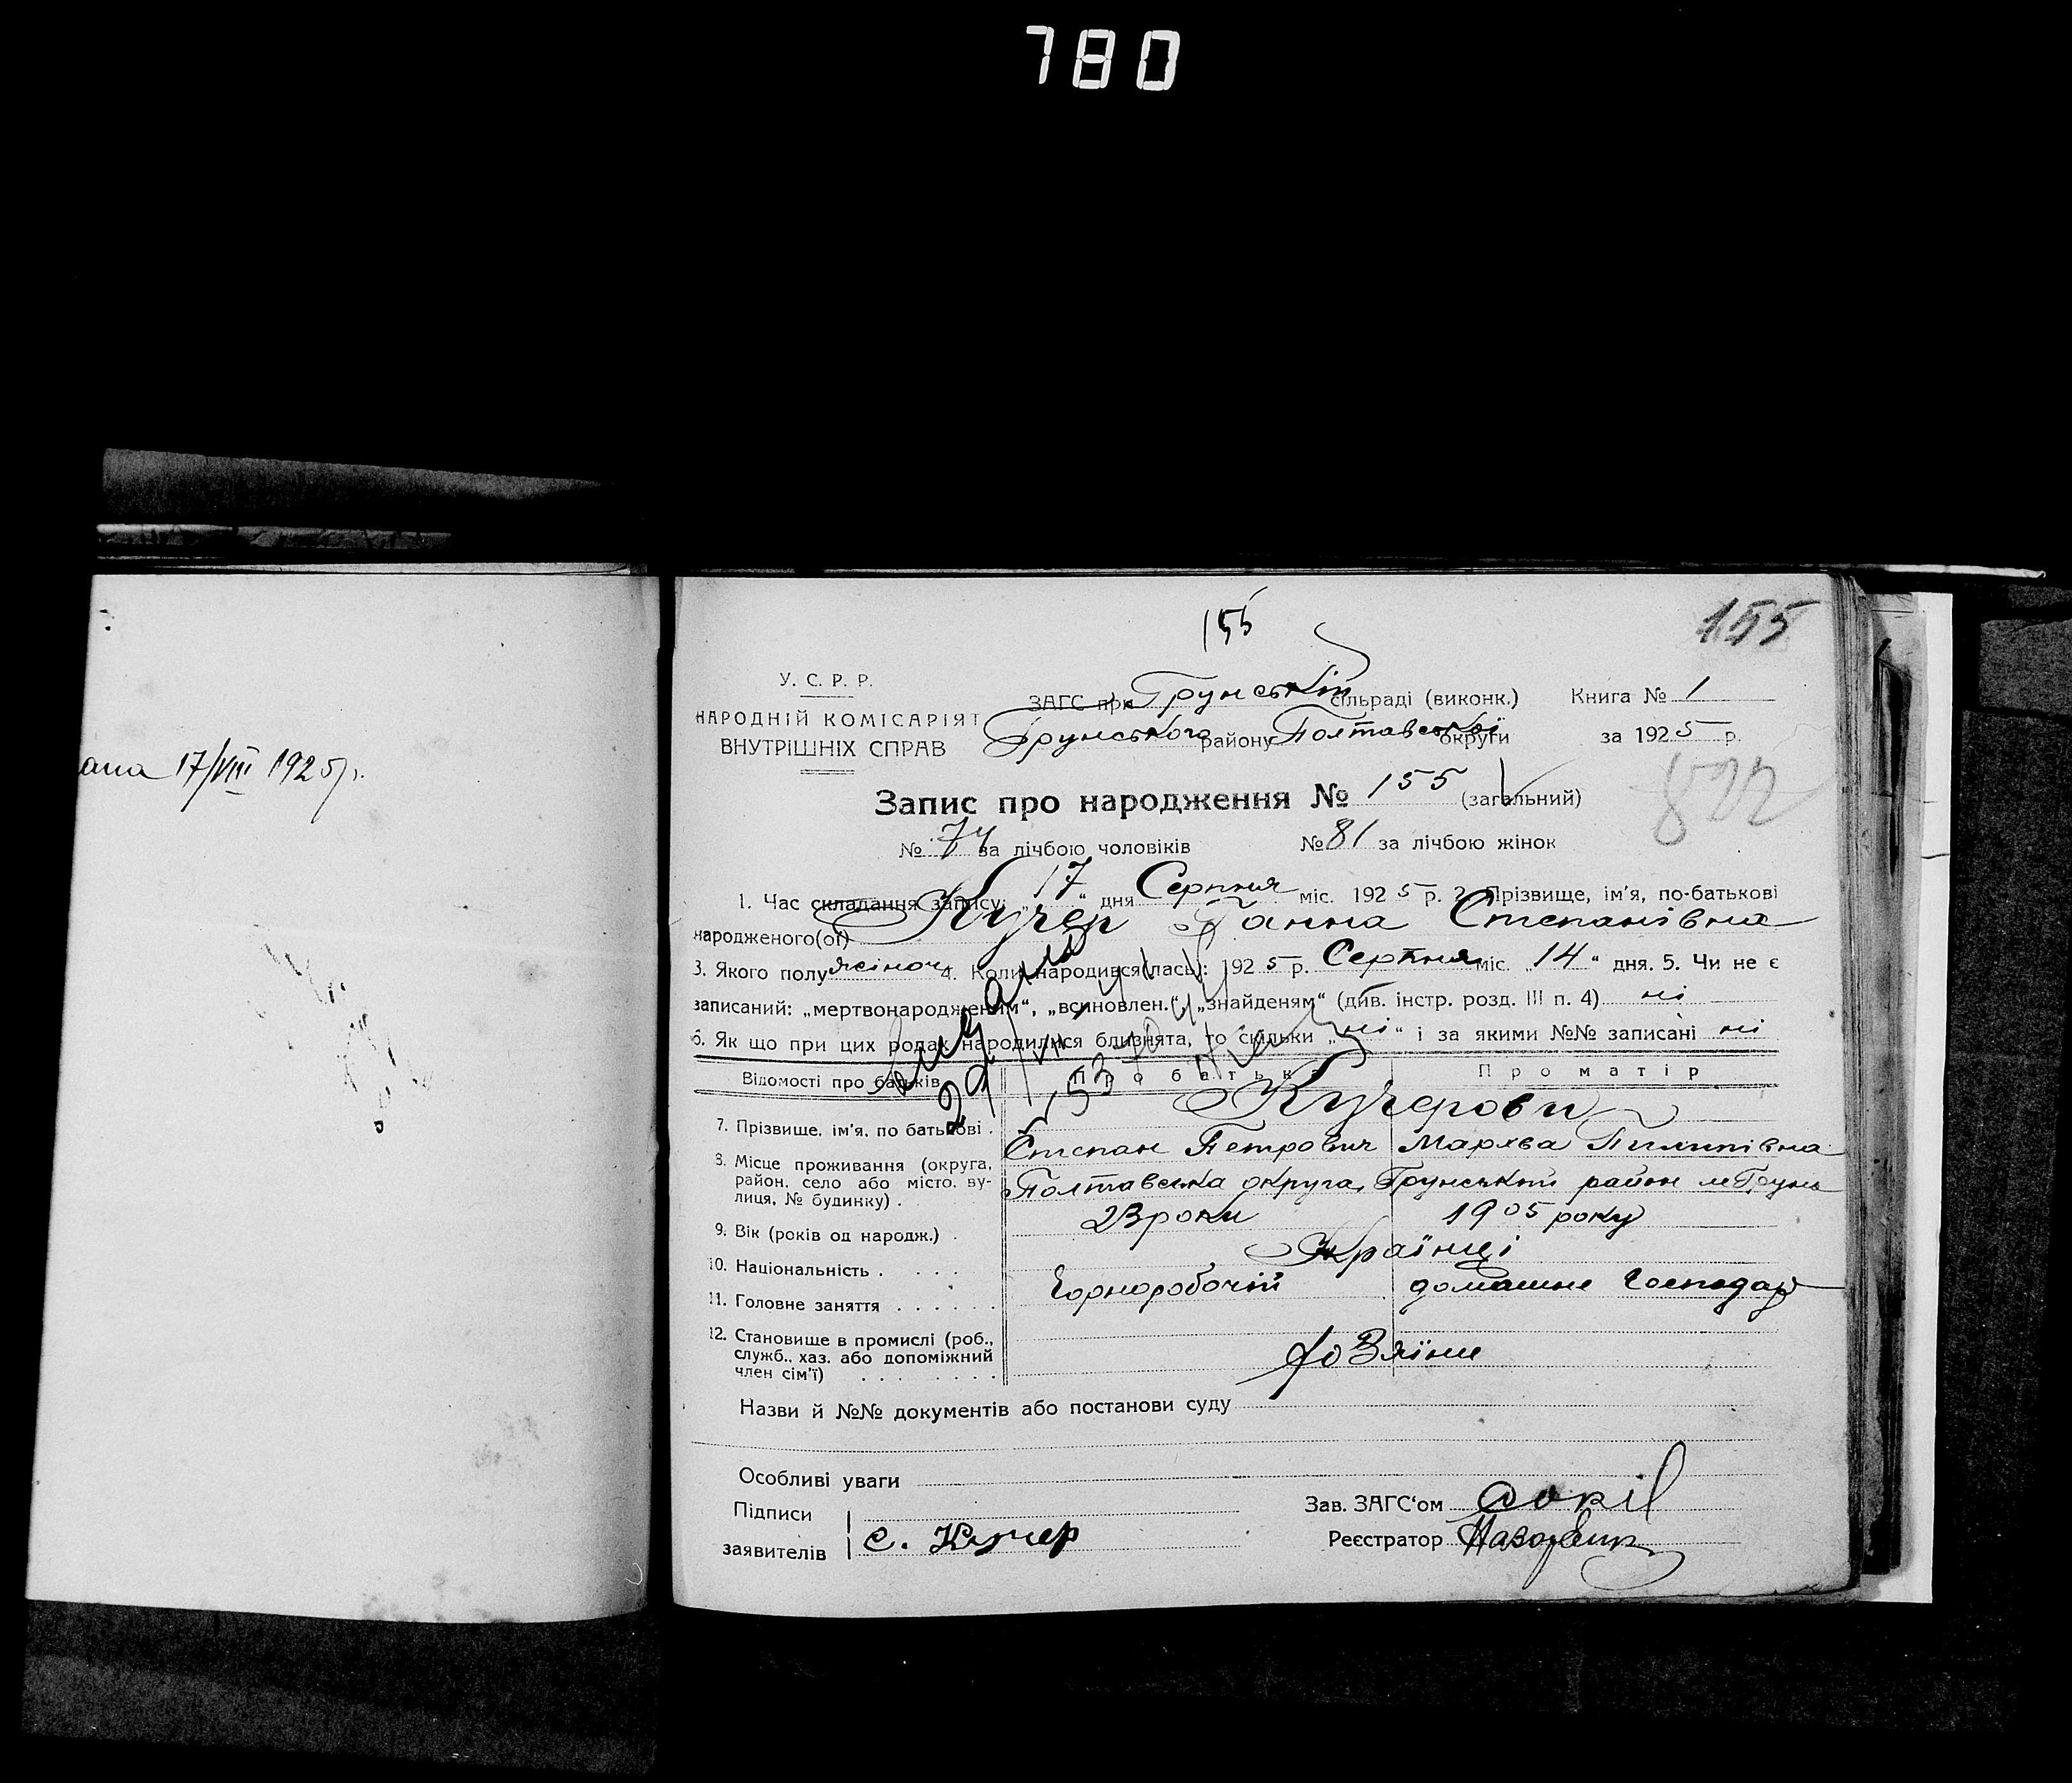 780
155
155
У. С. Р. Р.
НАРОДНІЙ КОМІСАРІЯТ
ВНУТРІШНІХ СПРАВ
ЗАГС при Грунській сільраді (виконк.)
Грунського району Полтавської округи
Книга № 1
за 1925 р.
ана 17/VIII 1925 р.
Запис про народження № 155 (загальний)
822
№ 74 за лічбою чоловіків № 81 за лічбою жінок
1. Час складання запису: „17“ дня Серпня міс. 1925 р. 2. Прізвище, ім'я, по-батькові
народженого(ої) Кучер Ганна Степанівна
3. Якого полу жіноч. 4. Коли народився(лась): 1925 р. Серпня міс. „14“ дня. 5. Чи не є
записаний: „мертвонародженим“, „всиновлен.“, „знайденям“ (див. інстр. розд. III п. 4) ні
6. Як що при цих родах народилися близнята, то скільки „ні“ і за якими №№ записані ні
Відомості про батьків Про батька Про матір
Кучерови
7. Прізвище, ім'я, по батькові . Степан Петрович Мархва Пилипівна
8. Місце проживання (округа, район, село або місто, вулиця, № будинку) . Полтавська округа, Грунський район м Грунь
9. Вік (років од народж.) . 23 роки 1905 року
10. Національність . . . . Українці
11. Головне заняття . . . . . . Чорноробочій домашнє господар
12. Становище в промислі (роб., служб., хаз. або допоміжний член сім'ї) . . . . . . . Хозяїни
Назви й №№ документів або постанови суду
Особливі уваги
Підписи
заявителів С. Кучер
Зав. ЗАГС‘ом Сокіл
Реєстратор